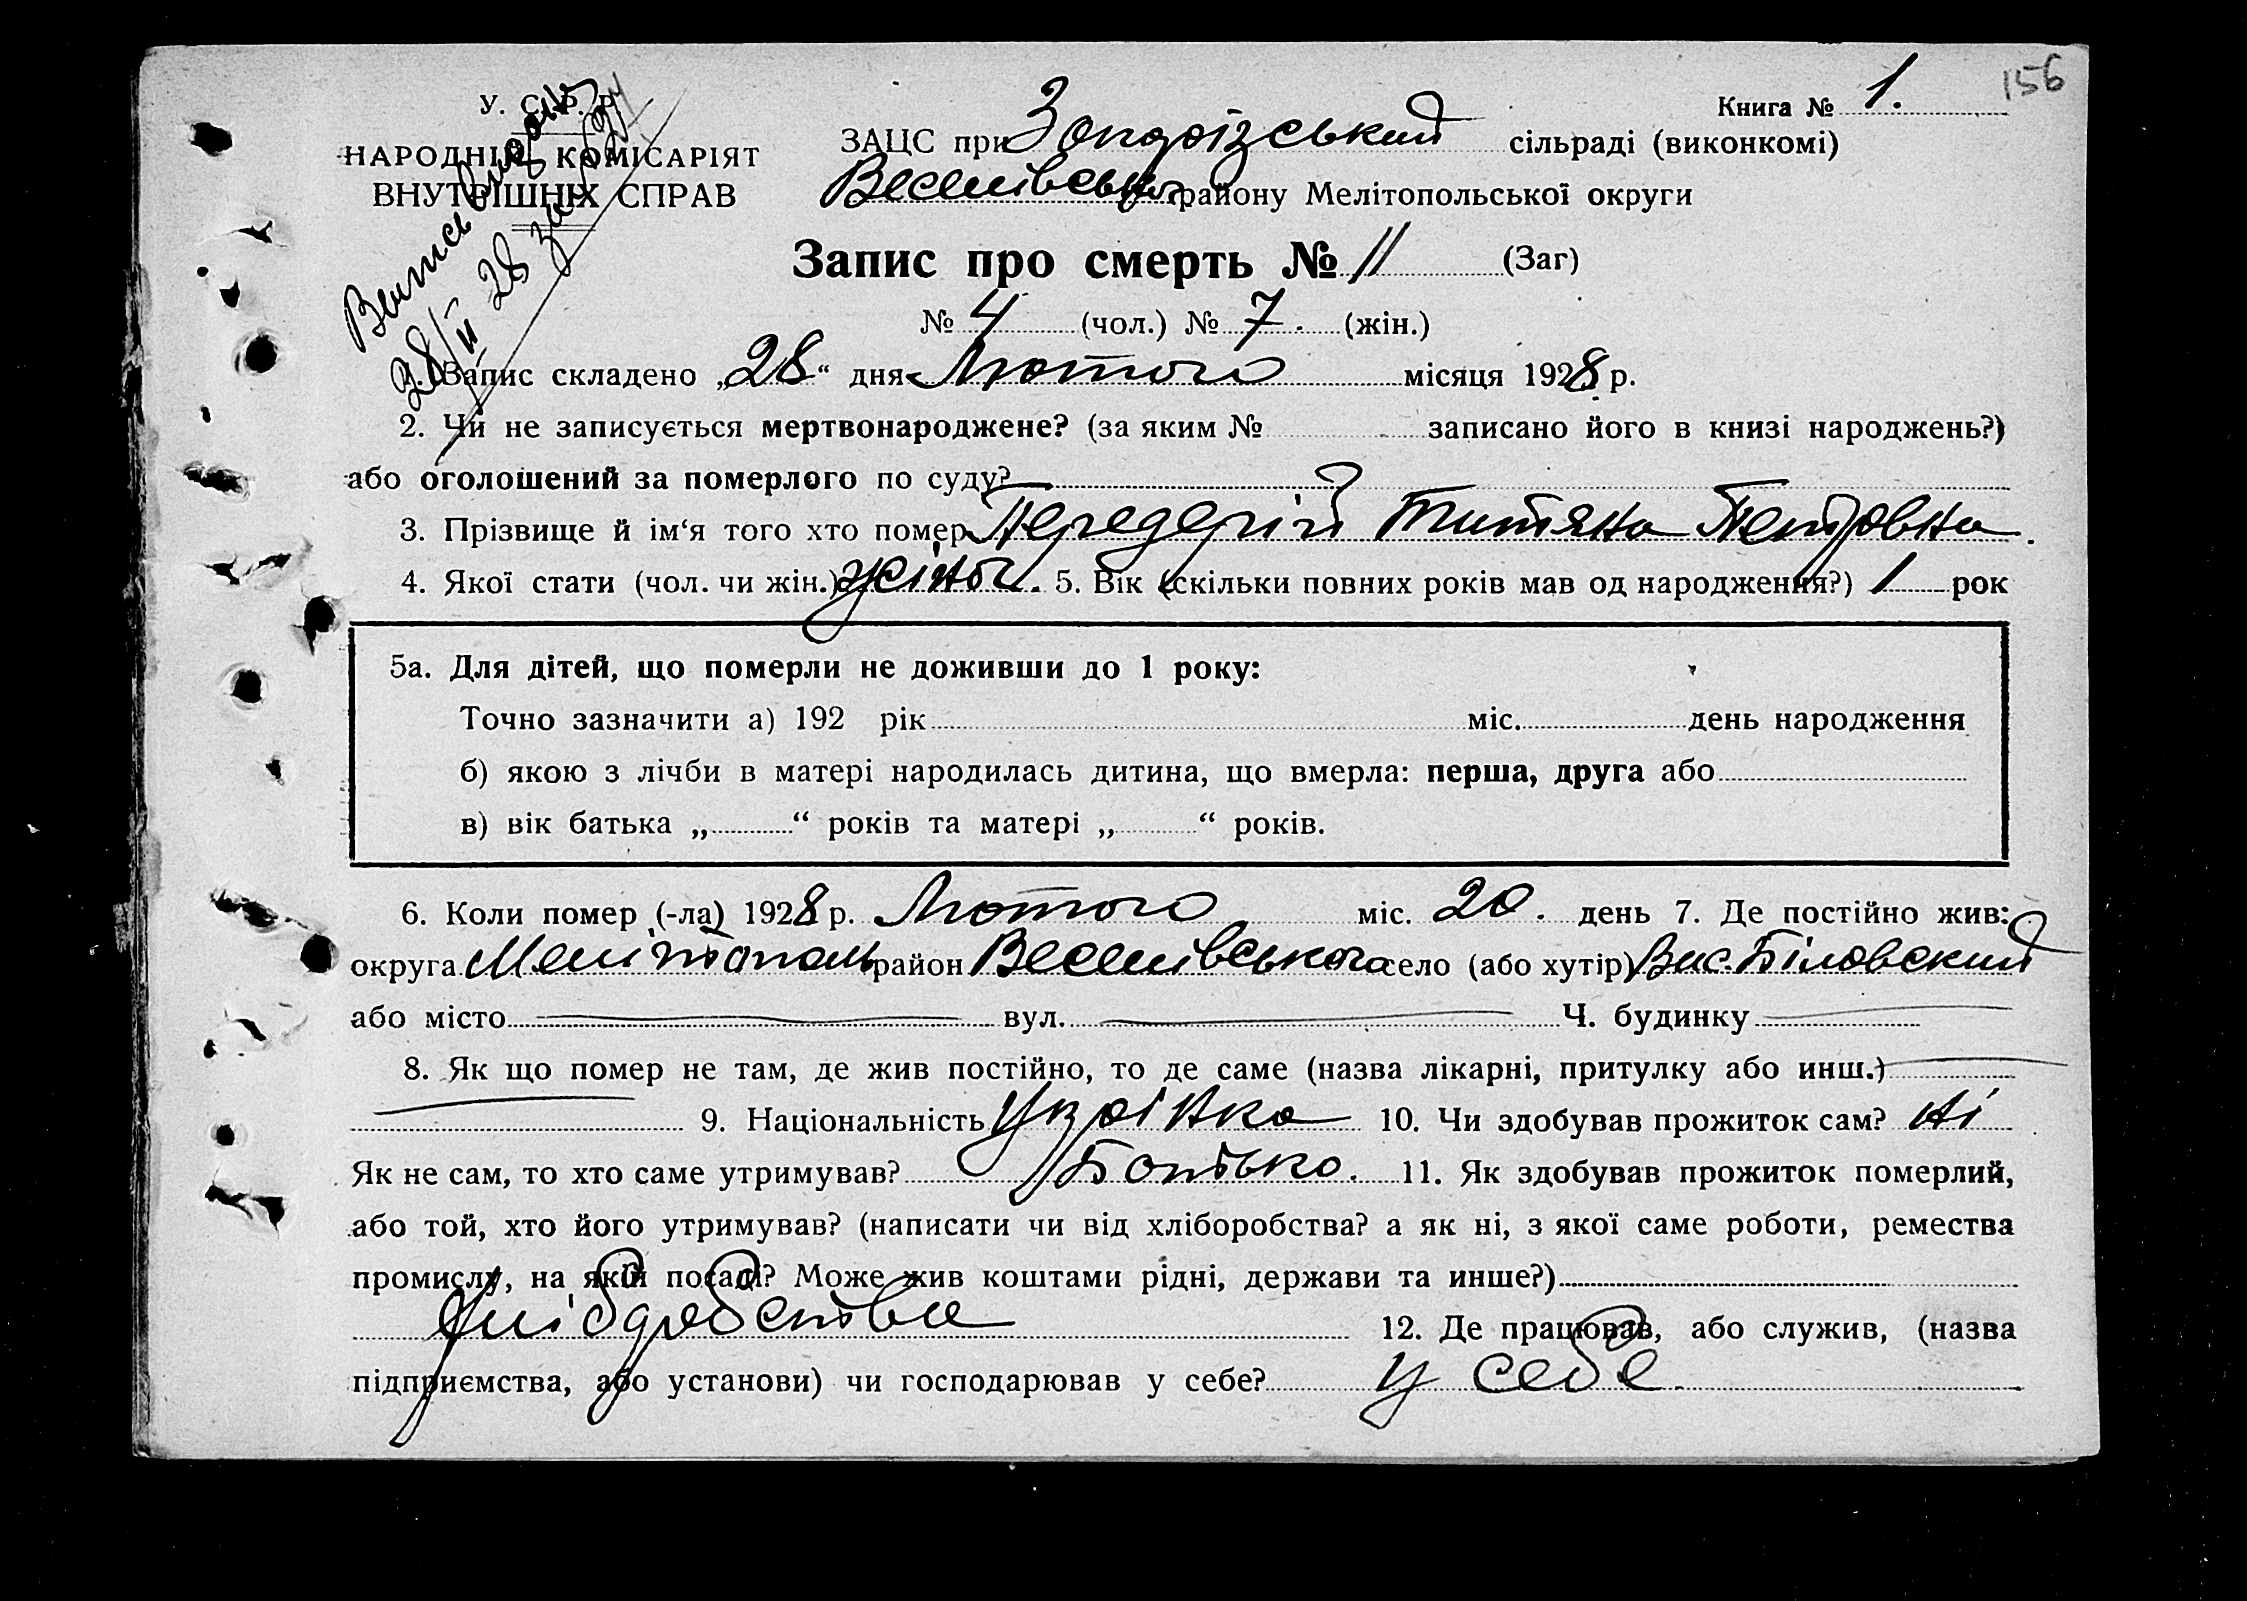 156
У. С. Р. Р.
Книга № 1.
НАРОДНІЙ КОМІСАРІЯТ
ВНУТРІШНІХ СПРАВ
ЗАЦС при сільраді (виконкомі)
Веселівського району Мелітопольської округи
28/II 28 за
Запис про смерть № 11 (Заг)
№ 4 (чол.) № 7. (жін.)
1. Запис складено „28“ дня Лютого місяця 1928 р.
2. Чи не записується мертвонароджене? (за яким № записано його в книзі народжень?)
або оголошений за померлого по суду?
3. Прізвище й ім‘я того хто помер Передерій Титяна Петровна.
4. Якої стати (чол. чи жін.) жіноч. 5. Вік (скільки повних років мав од народження?) 1 рок
5а. Для дітей, що померли не доживши до 1 року:
Точно зазначити а) 192 рік міс. день народження
б) якою з лічби в матері народилась дитина, що вмерла: перша, друга або
в) вік батька „ “ років та матері „ “ років.
6. Коли помер (-ла) 1928 р. Лютого міс. 20. день 7. Де постійно жив:
округа Мелітополь район Веселівського село (або хутір) Вис. Біловский
або місто вул. Ч. будинку
8. Як що помер не там, де жив постійно, то де саме (назва лікарні, притулку або инш.)
9. Національність Укрāїнка 10. Чи здобував прожиток сам? Ні
Як не сам, то хто саме утримував? Батько. 11. Як здобував прожиток померлий,
або той, хто його утримував? (написати чи від хліборобства? а як ні, з якої саме роботи, ремества
промислу, на якій посаді? Може жив коштами рідні, держави та инше?)
Хліборобства 12. Де працював, або служив, (назва
підприємства, або установи) чи господарював у себе? У себе.